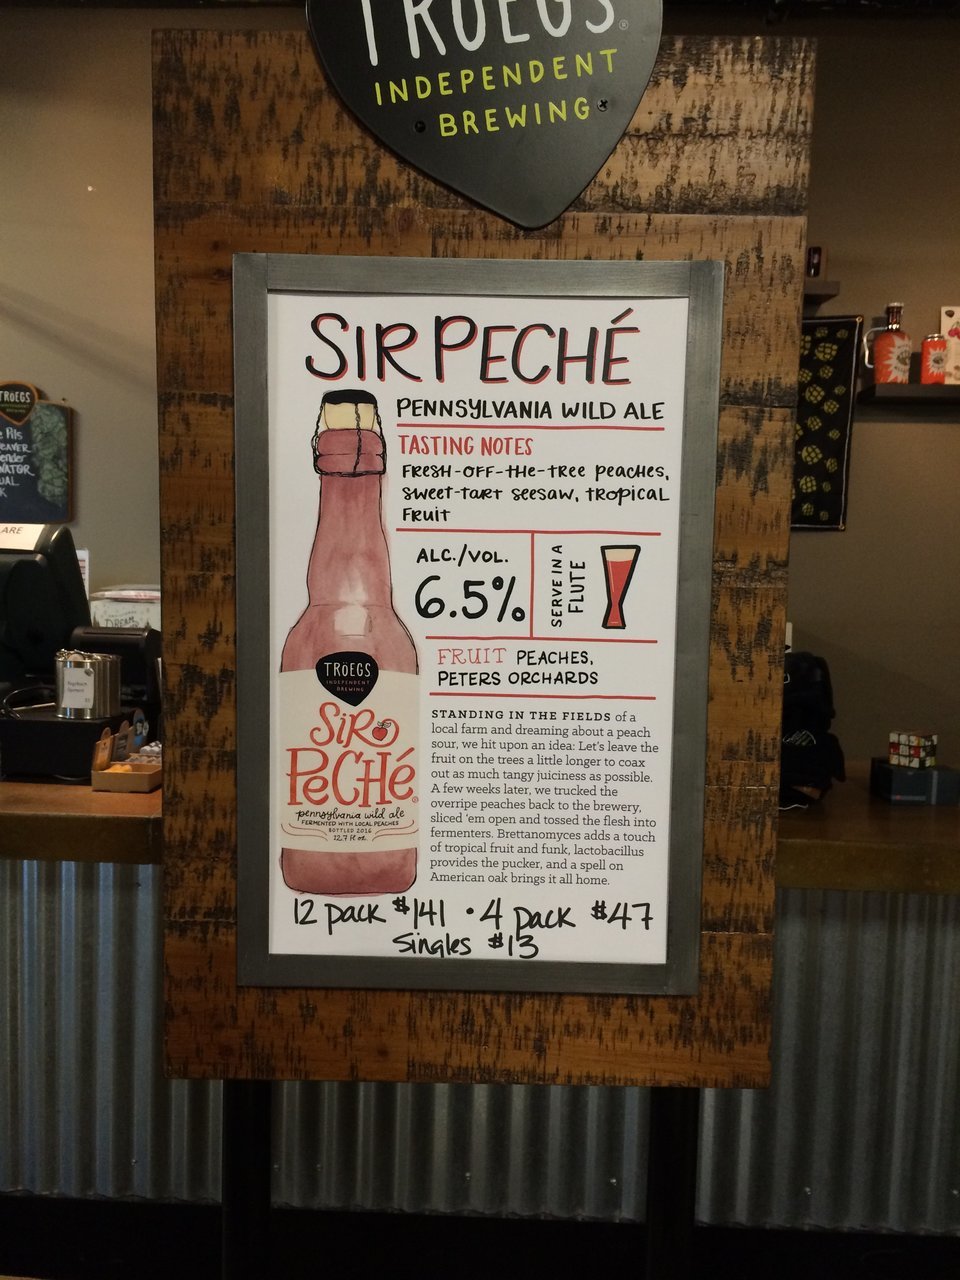 TRÖEGS®
INDEPENDENT
BREWING
SIR PECHÉ
PENNSYLVANIA WILD ALE
TASTING NOTES
FRESH-OFF-THE-TREE PEACHES,
SWEET-TART SEESAW, TROPICAL
FRUIT
ALC./VOL.
6.5%
SERVE IN A
FLUTE
FRUIT PEACHES,
PETERS ORCHARDS
STANDING IN THE FIELDS of a
local farm and dreaming about a peach
sour, we hit upon an idea: Let's leave the
fruit on the trees a little longer to coax
out as much tangy juiciness as possible.
A few weeks later, we trucked the
overripe peaches back to the brewery,
sliced 'em open and tossed the flesh into
fermenters. Brettanomyces adds a touch
of tropical fruit and funk, lactobacillus
provides the pucker, and a spell on
American oak brings it all home.
TRÖEGS
INDEPENDENT
BREWING
SIR
PECHÉ®
pennsylvania wild ale
FERMENTED WITH LOCAL PEACHES
BOTTLED 2016
12.7 fl oz.
12 pack $141 • 4 pack $47
Singles $13
TRÖEGS
Pils
DREAM
ARE